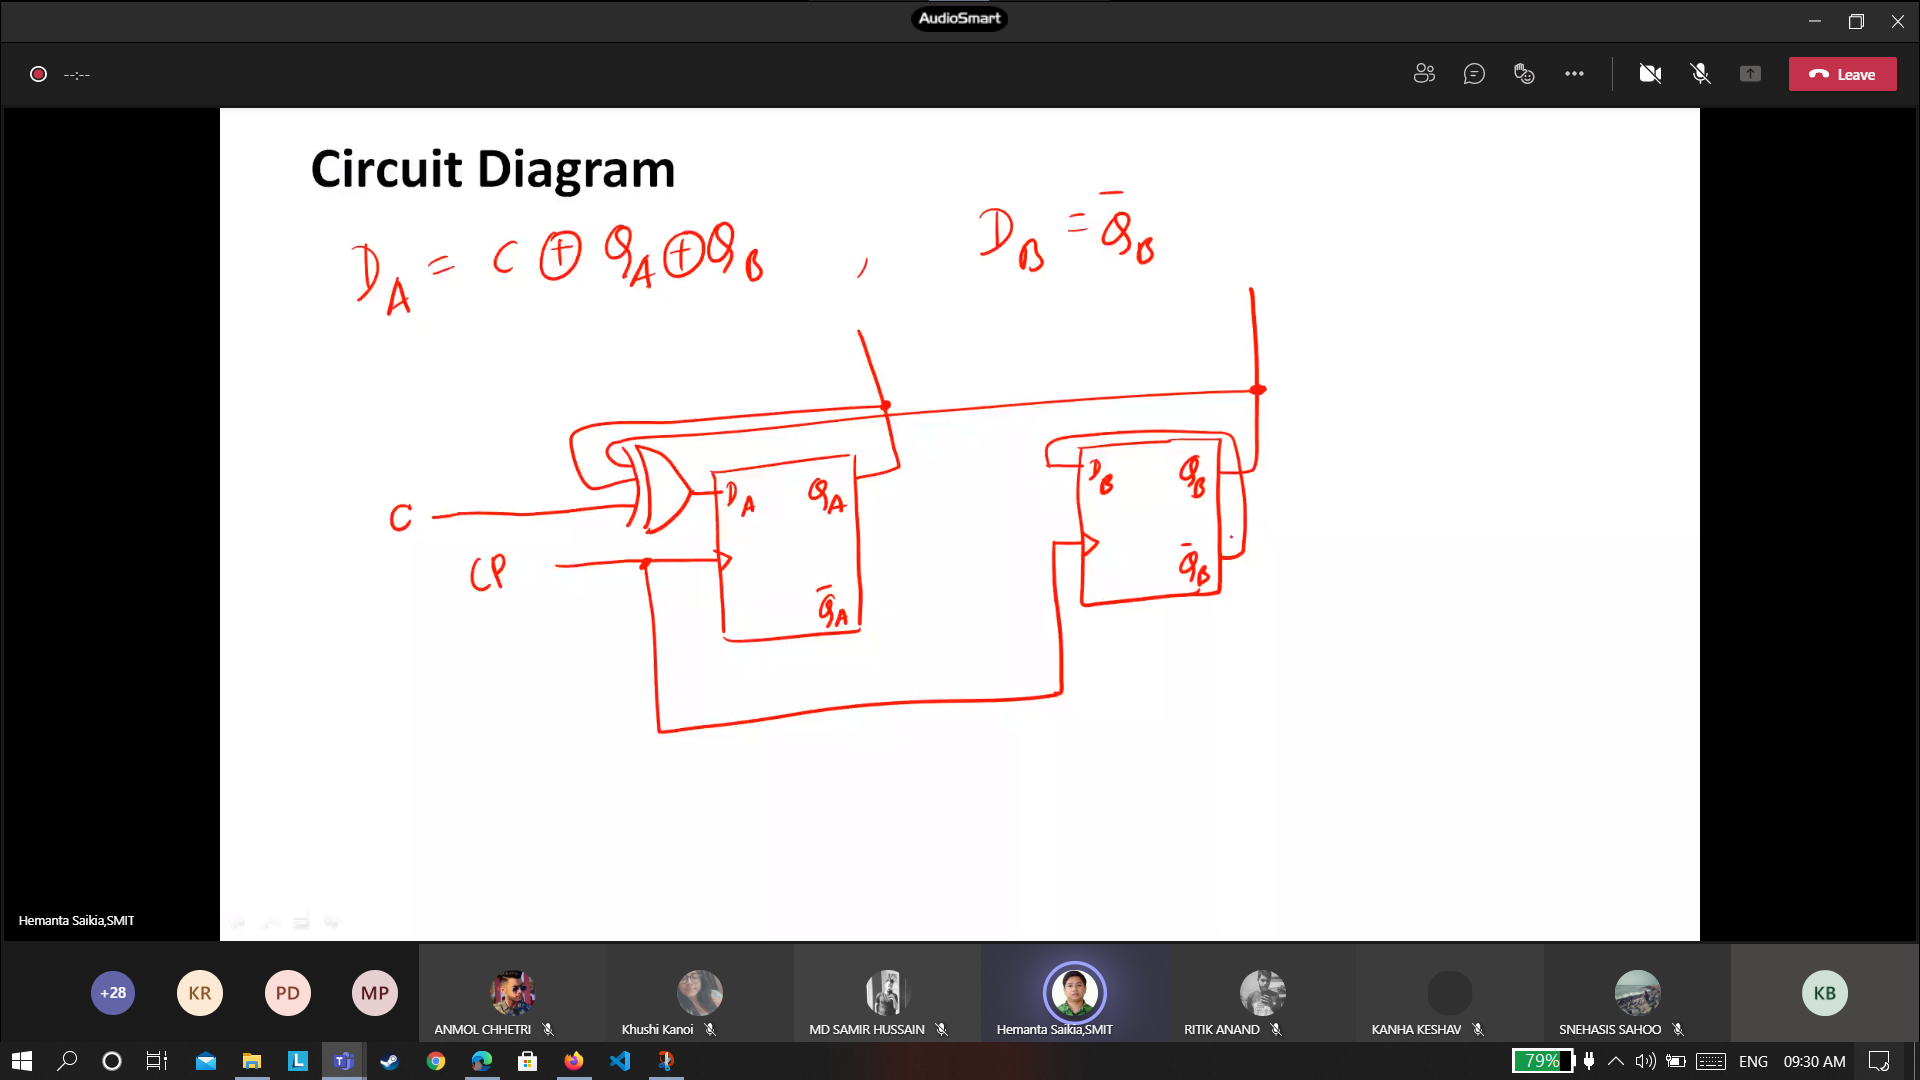 AudioSmart
--:--
Leave
Circuit Diagram
D_A = C ⊕ Q_A ⊕ Q_B , D_B = Q̅_B
C
CP
D_A Q_A
Q̅_A
D_B Q_B
Q̅_B
Hemanta Saikia,SMIT
+28 KR PD MP KB
ANMOL CHHETRI Khushi Kanoi MD SAMIR HUSSAIN Hemanta Saikia,SMIT RITIK ANAND KANHA KESHAV SNEHASIS SAHOO
L 79% ENG 09:30 AM